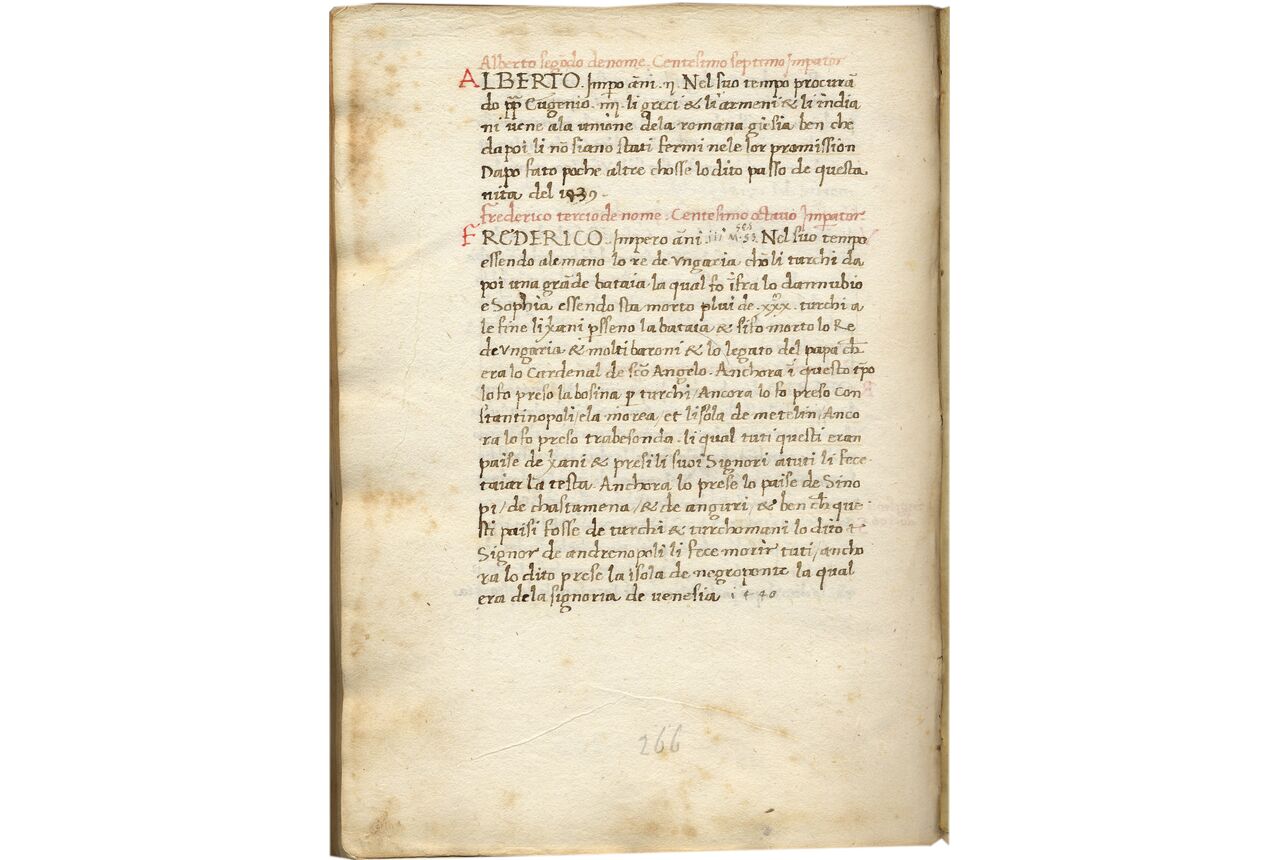 Alberto segōdo de nome. Centesimo septimo Jmpator
ALBERTO. Jmpo āni. η. Nel suo tempo procurā
do pp̄ Eugenio. IIII. li greci & li armeni & li india
ni uene ala unione dela romana giesia ben che
da poi li nō siano stati fermi nele lor promission
Dapo fato poche altre chosse lo dito passo de questa
uita del 1439.
Frederico tercio de nome. Centesimo octauo Jmpator
FREDERICO. Jmpero āni. Nel suo tempo
essendo alemano lo re de vngaria chō li turchi da
poi una grāde bataia la qual fo īfra lo dannubio
e Sophia essendo sta morto plui de .xxx. turchi a
le fine li x̄ani psseno la bataia & si fo morto lo Re
de vngaria & molti baroni & lo legato del papa ch̄
era lo Cardenal de sc̄o Angelo. Anchora ī questo tp̄o
lo fo preso la bosina p turchi/Ancora lo fo preso Con
stantinopoli/e la morea/et lisola de metelin/Anco
ra lo fo preso trabesonda. li qual tuti questi eran
paise de x̄ani & presi li suoi Signori a tuti li fece
taiar la testa. Anchora lo prese lo paise de Sino
pi/de chastamena/& de anguri/& ben ch̄ que
sti paisi fosse de turchi & turchomani lo dito
Signor de andrenopoli li fece morir tuti/ancho
ra lo dito prese la isola de negroponte la qual
era dela signoria de venesia 1440
266